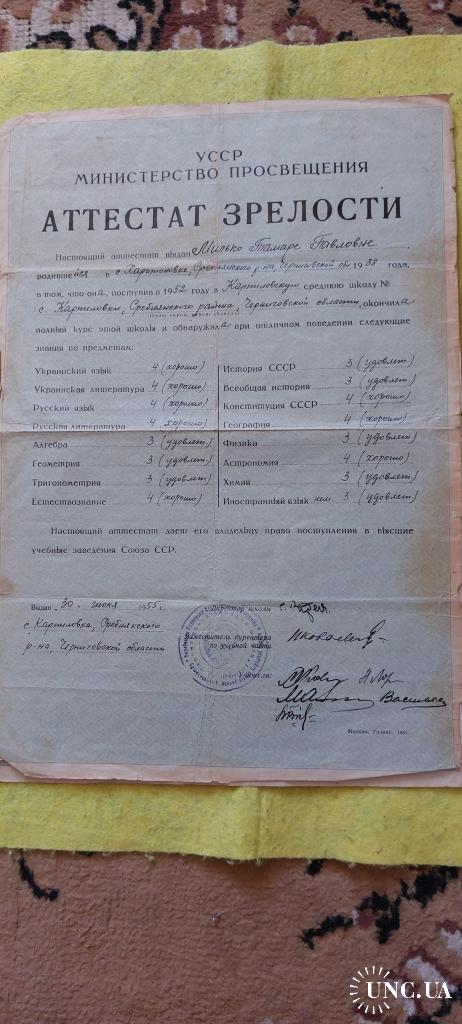 УССР
МИНИСТЕРСТВО ПРОСВЕЩЕНИЯ
АТТЕСТАТ ЗРЕЛОСТИ
Настоящий аттестат выдан Милько Тамаре Павловне,
родившейся в с. Харитоновке, Сребнянского р-на, Черниговской обл 1938 года,
в том, что она, поступив в 1952 году в Карпиловскую среднюю школу №
с. Карпиловки, Сребнянского района, Черниговской области, окончила
полный курс этой школы и обнаружила при отличном поведении следующие
знания по предметам:
Украинский язык 4 (хорошо)
Украинская литература 4 (хорошо)
Русский язык 4 (хорошо)
Русская литература 4 (хорошо)
Алгебра 3 (удовлет.)
Геометрия 3 (удовлет.)
Тригонометрия 3 (удовлет.)
Естествознание 4 (хорошо)
История СССР 3 (удовлет.)
Всеобщая история 3 (удовлет.)
Конституция СССР 4 (хорошо)
География 4 (хорошо)
Физика 3 (удовлет.)
Астрономия 4 (хорошо)
Химия 3 (удовлет.)
Иностранный язык нем. 3 (удовлет.)
Настоящий аттестат дает его владельцу право поступления в высшие
учебные заведения Союза ССР.
Выдан "30" июня 1955 г.
с. Карпиловка, Сребнянского
р-на, Черниговской области
Директор школы
Заместитель директора
по учебной части
Учителя:
Москва, Гознак,
UNC.UA